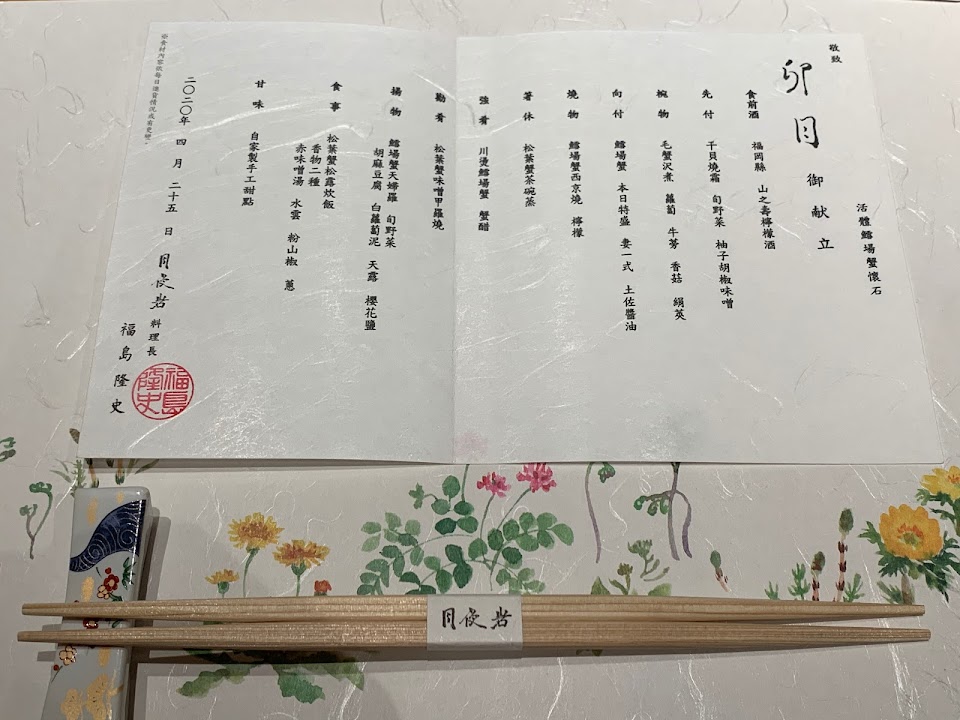 敬致
卯月 御献立
活體鱈場蟹懷石
食前酒 福岡縣 山之壽檸檬酒
先付 干貝燒霜 旬野菜 柚子胡椒味噌
椀物 毛蟹沢煮 蘿蔔 牛蒡 香菇 絹莢
向付 鱈場蟹 本日特盛 妻一式 土佐醬油
燒物 鱈場蟹西京燒 檸檬
箸休 松葉蟹茶碗蒸
強肴 川燙鱈場蟹 蟹醋
勸肴 松葉蟹味噌甲羅燒
揚物 鱈場蟹天婦羅 旬野菜
胡麻豆腐 白蘿蔔泥 天露 櫻花鹽
食事 松葉蟹松露炊飯
香物二種
赤味噌湯 水雲 粉山椒 蔥
甘味 自家製手工甜點
二〇二〇年 四月 二十五日
料理長
福島隆史
福島隆史